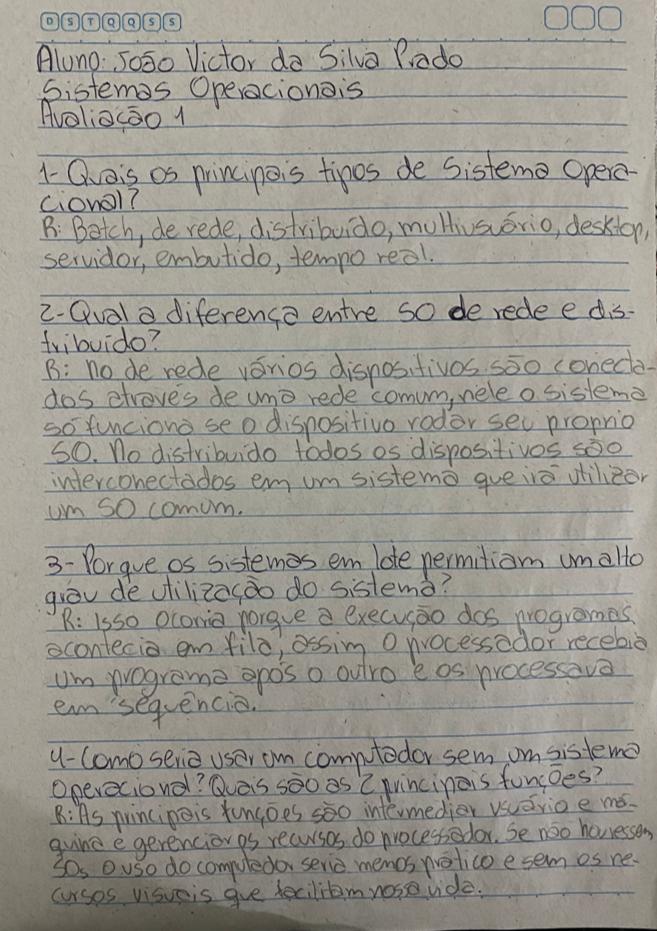 D S T Q Q S S
Aluno: João Victor da Silva Prado
Sistemas Operacionais
Avaliação 1
1- Quais os principais tipos de Sistema Opera-
cional?
R: Batch, de rede, distribuído, multiusuário, desktop,
servidor, embutido, tempo real.
2- Qual a diferença entre SO de rede e dis-
tribuído?
R: no de rede vários dispositivos são conecta-
dos através de uma rede comum, nele o sistema
só funciona se o dispositivo rodar seu proprio
SO. No distribuido todos os dispositivos são
interconectados em um sistema que irá utilizar
um SO comum.
3- Por que os sistemas em lote permitiam um alto
grau de utilização do sistema?
R: Isso ocorria porque a execução dos programas
acontecia em fila, assim o processador recebia
um programa após o outro e os processava
em sequência.
4- Como seria usar um computador sem um sistema
operacional? Quais são as 2 principais funções?
R: As principais funções são intermediar usuário e má-
quina e gerenciar os recursos do processador. Se não houvessem
SOs o uso do computador seria menos prático e sem os re-
cursos visuais que facilitam nossa vida.